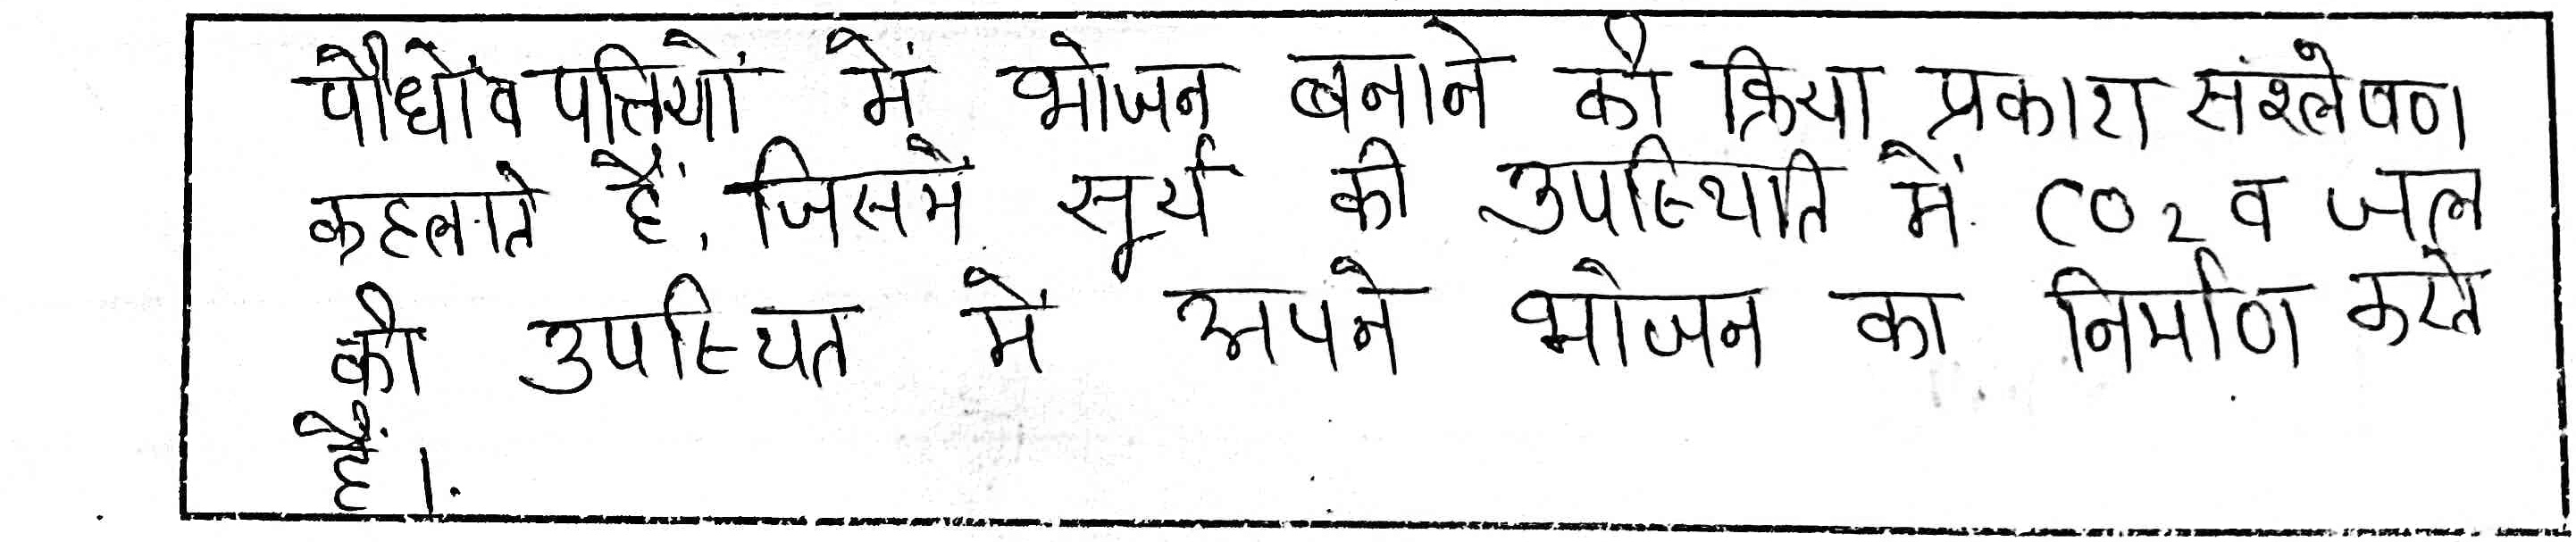 पौधों व पत्तियों में भोजन बनाने की क्रिया प्रकाश संश्लेषण
कहलाते हैं, जिसमें सूर्य की उपस्थिति में CO₂ व जल
की उपस्थित में अपने भोजन का निर्माण करते
हैं।